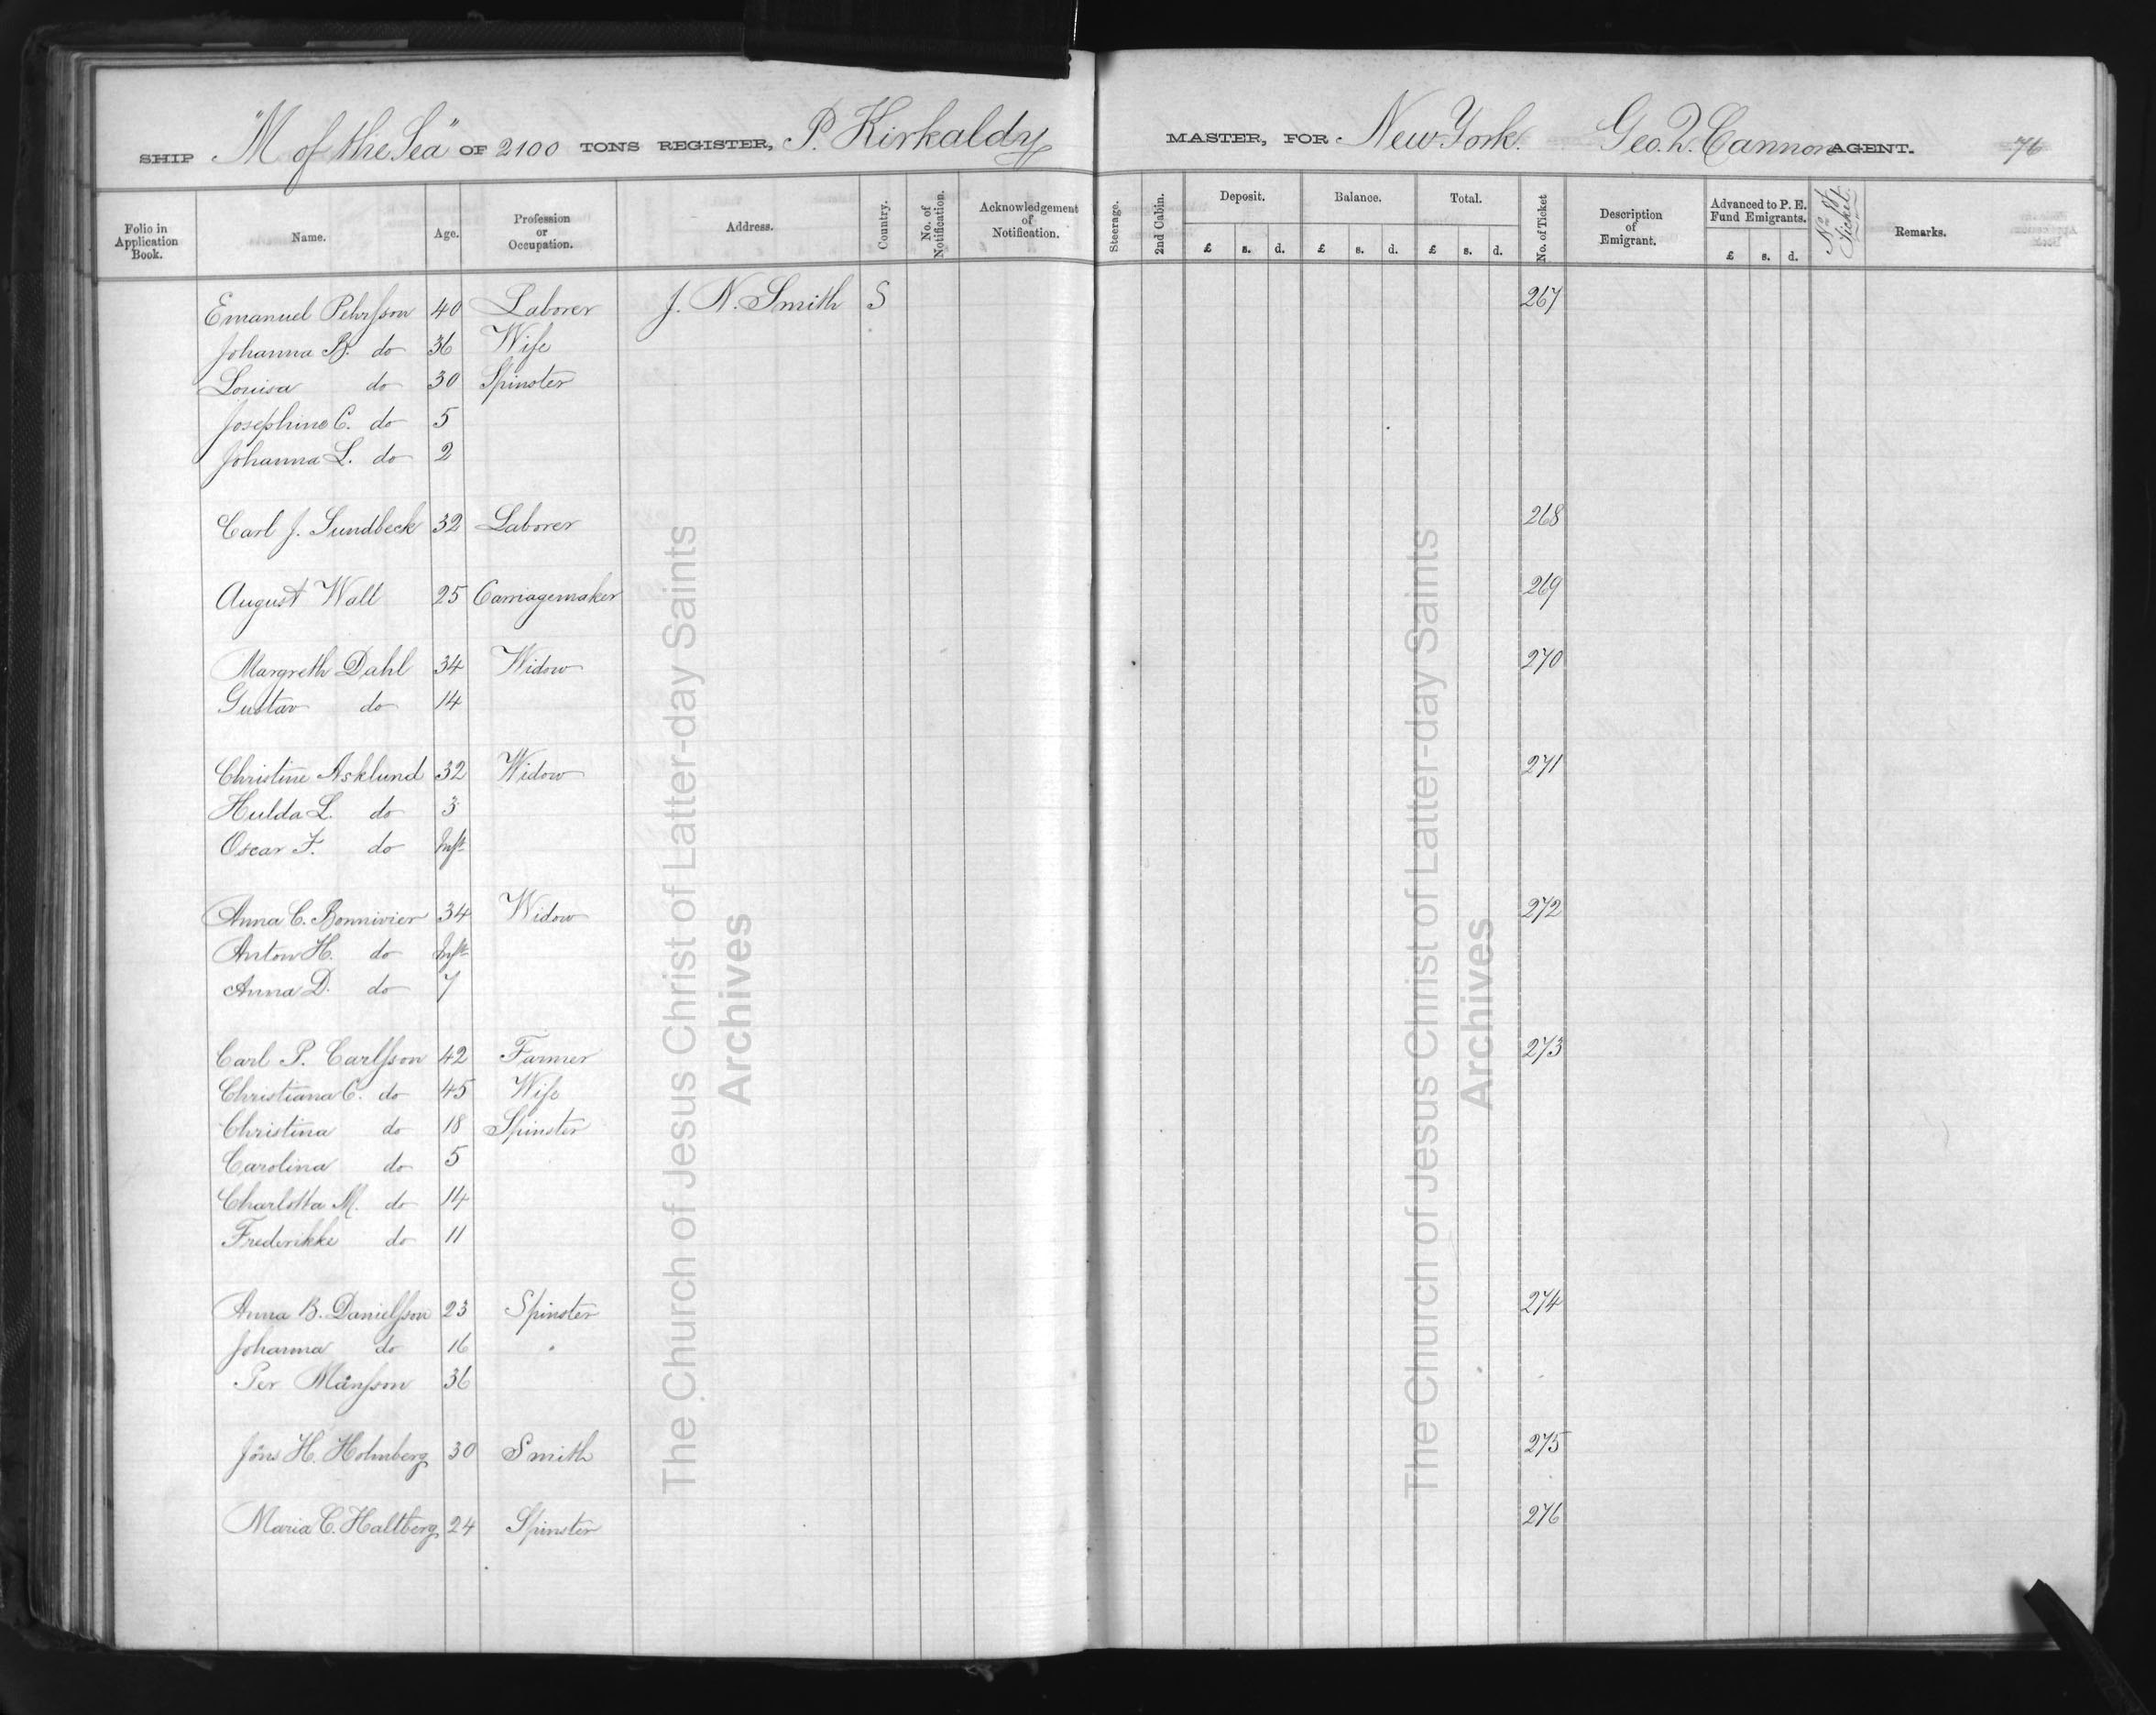 SHIP "M of the Sea" OF 2100 TONS REGISTER, P. Kirkaldy MASTER, FOR New York. Geo. Q. Cannon AGENT. 76
Folio in Application Book. Name. Age. Profession or Occupation. Address. Country. No. of Notification. Acknowledgement of Notification. Steerage. 2nd Cabin. Deposit. £ s. d. Balance. £ s. d. Total. £ s. d. No. of Ticket Description of Emigrant. Advanced to P. E. Fund Emigrants. £ s. d. No. of Ticket. Remarks.
Emanuel Pehrsson 40 Laborer J. N. Smith S 267
Johanna B. do 36 Wife
Louisa do 30 Spinster
Josephine C. do 5
Johanna L. do 2
Carl J. Sundbeck 32 Laborer 268
August Wall 25 Carriagemaker 269
Margreth Dahl 34 Widow 270
Gustav do 14
Christine Asklund 32 Widow 271
Hulda L. do 3
Oscar F. do Inft
Anna C. Bonnivier 34 Widow 272
Anton H. do Inft
Anna D. do 7
Carl P. Carlsson 42 Farmer 273
Christiana C. do 45 Wife
Christina do 18 Spinster
Carolina do 5
Charlotta M. do 14
Frederikke do 11
Anna B. Danielsson 23 Spinster 274
Johanna do 16 "
Per Månsson 36
Jöns H. Holmberg 30 Smith 275
Maria C. Haltberg 24 Spinster 276
The Church of Jesus Christ of Latter-day Saints
Archives
The Church of Jesus Christ of Latter-day Saints
Archives